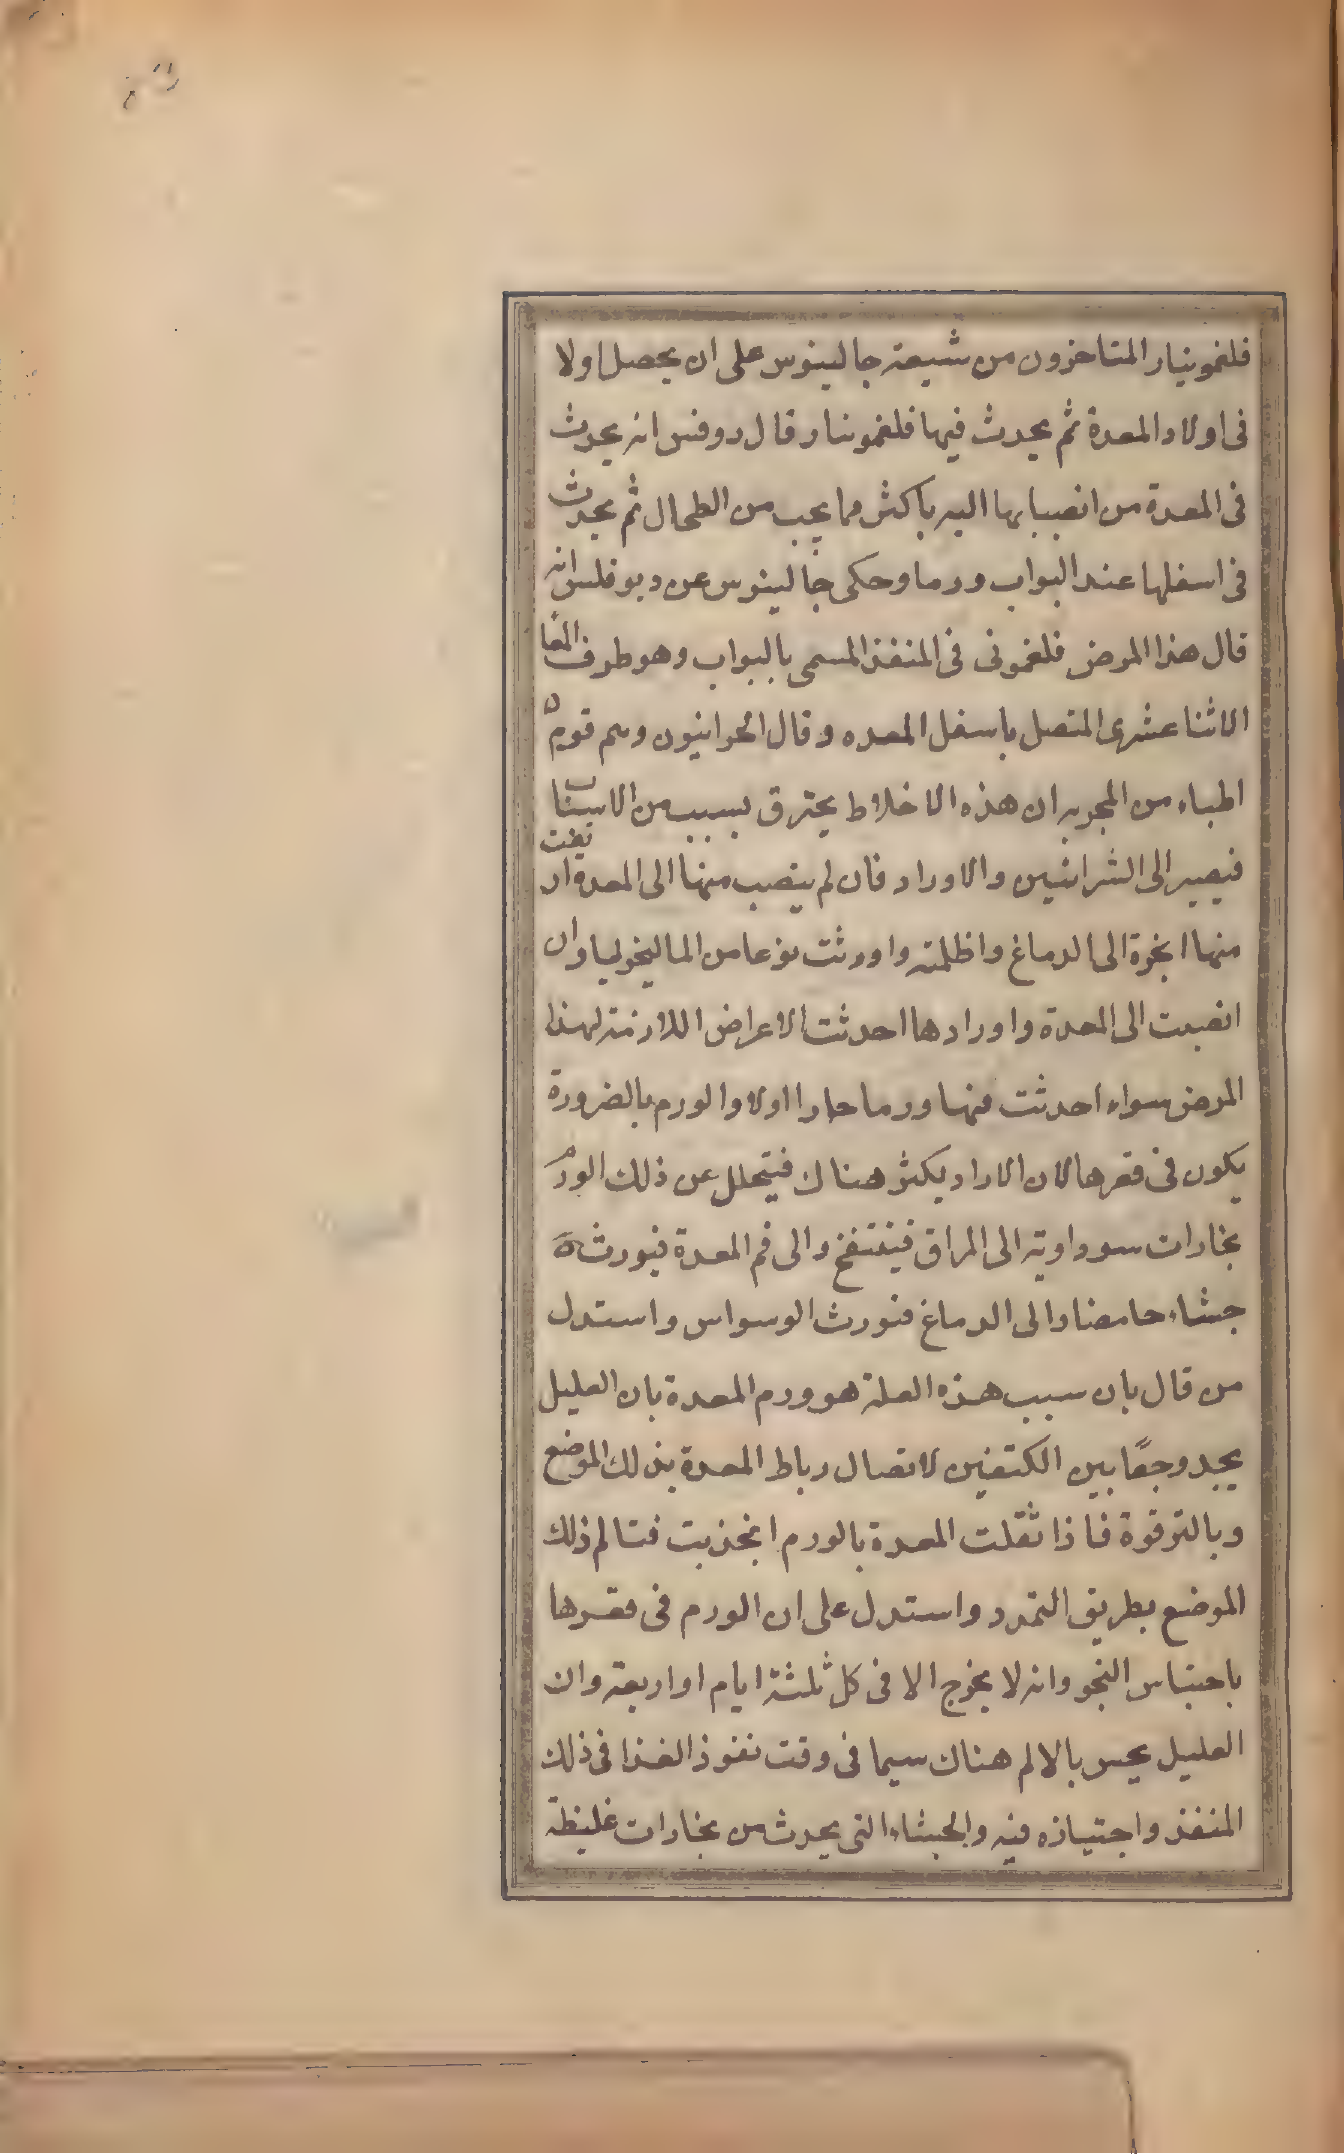 فلغمونيار المتاخرون من شيعة جالينوس على ان يحصل اولا
فى اوراد المعدة ثم يحدث فيها فلغمونيا وقال روفس انه يحدث
فى المعدة من انصبابها اليه باكثر مما يجب من الطحال ثم يحدث
فى اسفلها عند البواب ورما وحكى جالينوس عن ديوفلس انه
قال هذا المرض فلغمونى فى المنفذ المسمى بالبواب وهو طرف المعا
الاثنا عشرى المتصل باسفل المعده وقال الحرانيون وهم قوم
اطباء من المجربه ان هذه الاخلاط يحترق بسبب من الاسباب
فيصير الى الشرائين والاوراد فان لم ينصب منها الى المعدة ارتفت
منها ابخرة الى الدماغ واظلمته واورثت نوعا من الماليخوليا وان
انصبت الى المعدة واورادها احدثت الاعراض اللازمة لهذا
المرض سواء احدثت فيها ورما حارا اولا والورم بالضرورة
يكون فى قعرها لان الاراد يكثر هناك فيتحلل عن ذلك الورم
بخارات سوداوية الى المراق فينتفخ والى فم المعدة فيورث
جشاء حامضا والى الدماغ فتورث الوسواس واستدل
من قال بان سبب هذه العلة هو ورم المعدة بان العليل
يجد وجعًا بين الكتفين لاتصال رباط المعدة بذلك الموضع
وبالترقوة فاذا ثقلت المعدة بالورم انجذبت فتالم ذلك
الموضع بطريق التمدد واستدل على ان الورم فى قعرها
باحتباس النجو وانه لا يخرج الا فى كل ثلثة ايام او اربعة وان
العليل يحس بالالم هناك سيما فى وقت نفوذ الغذا فى ذلك
المنفذ واجتيازه فيه والجشاء التى يحدث من بخارات غليظة